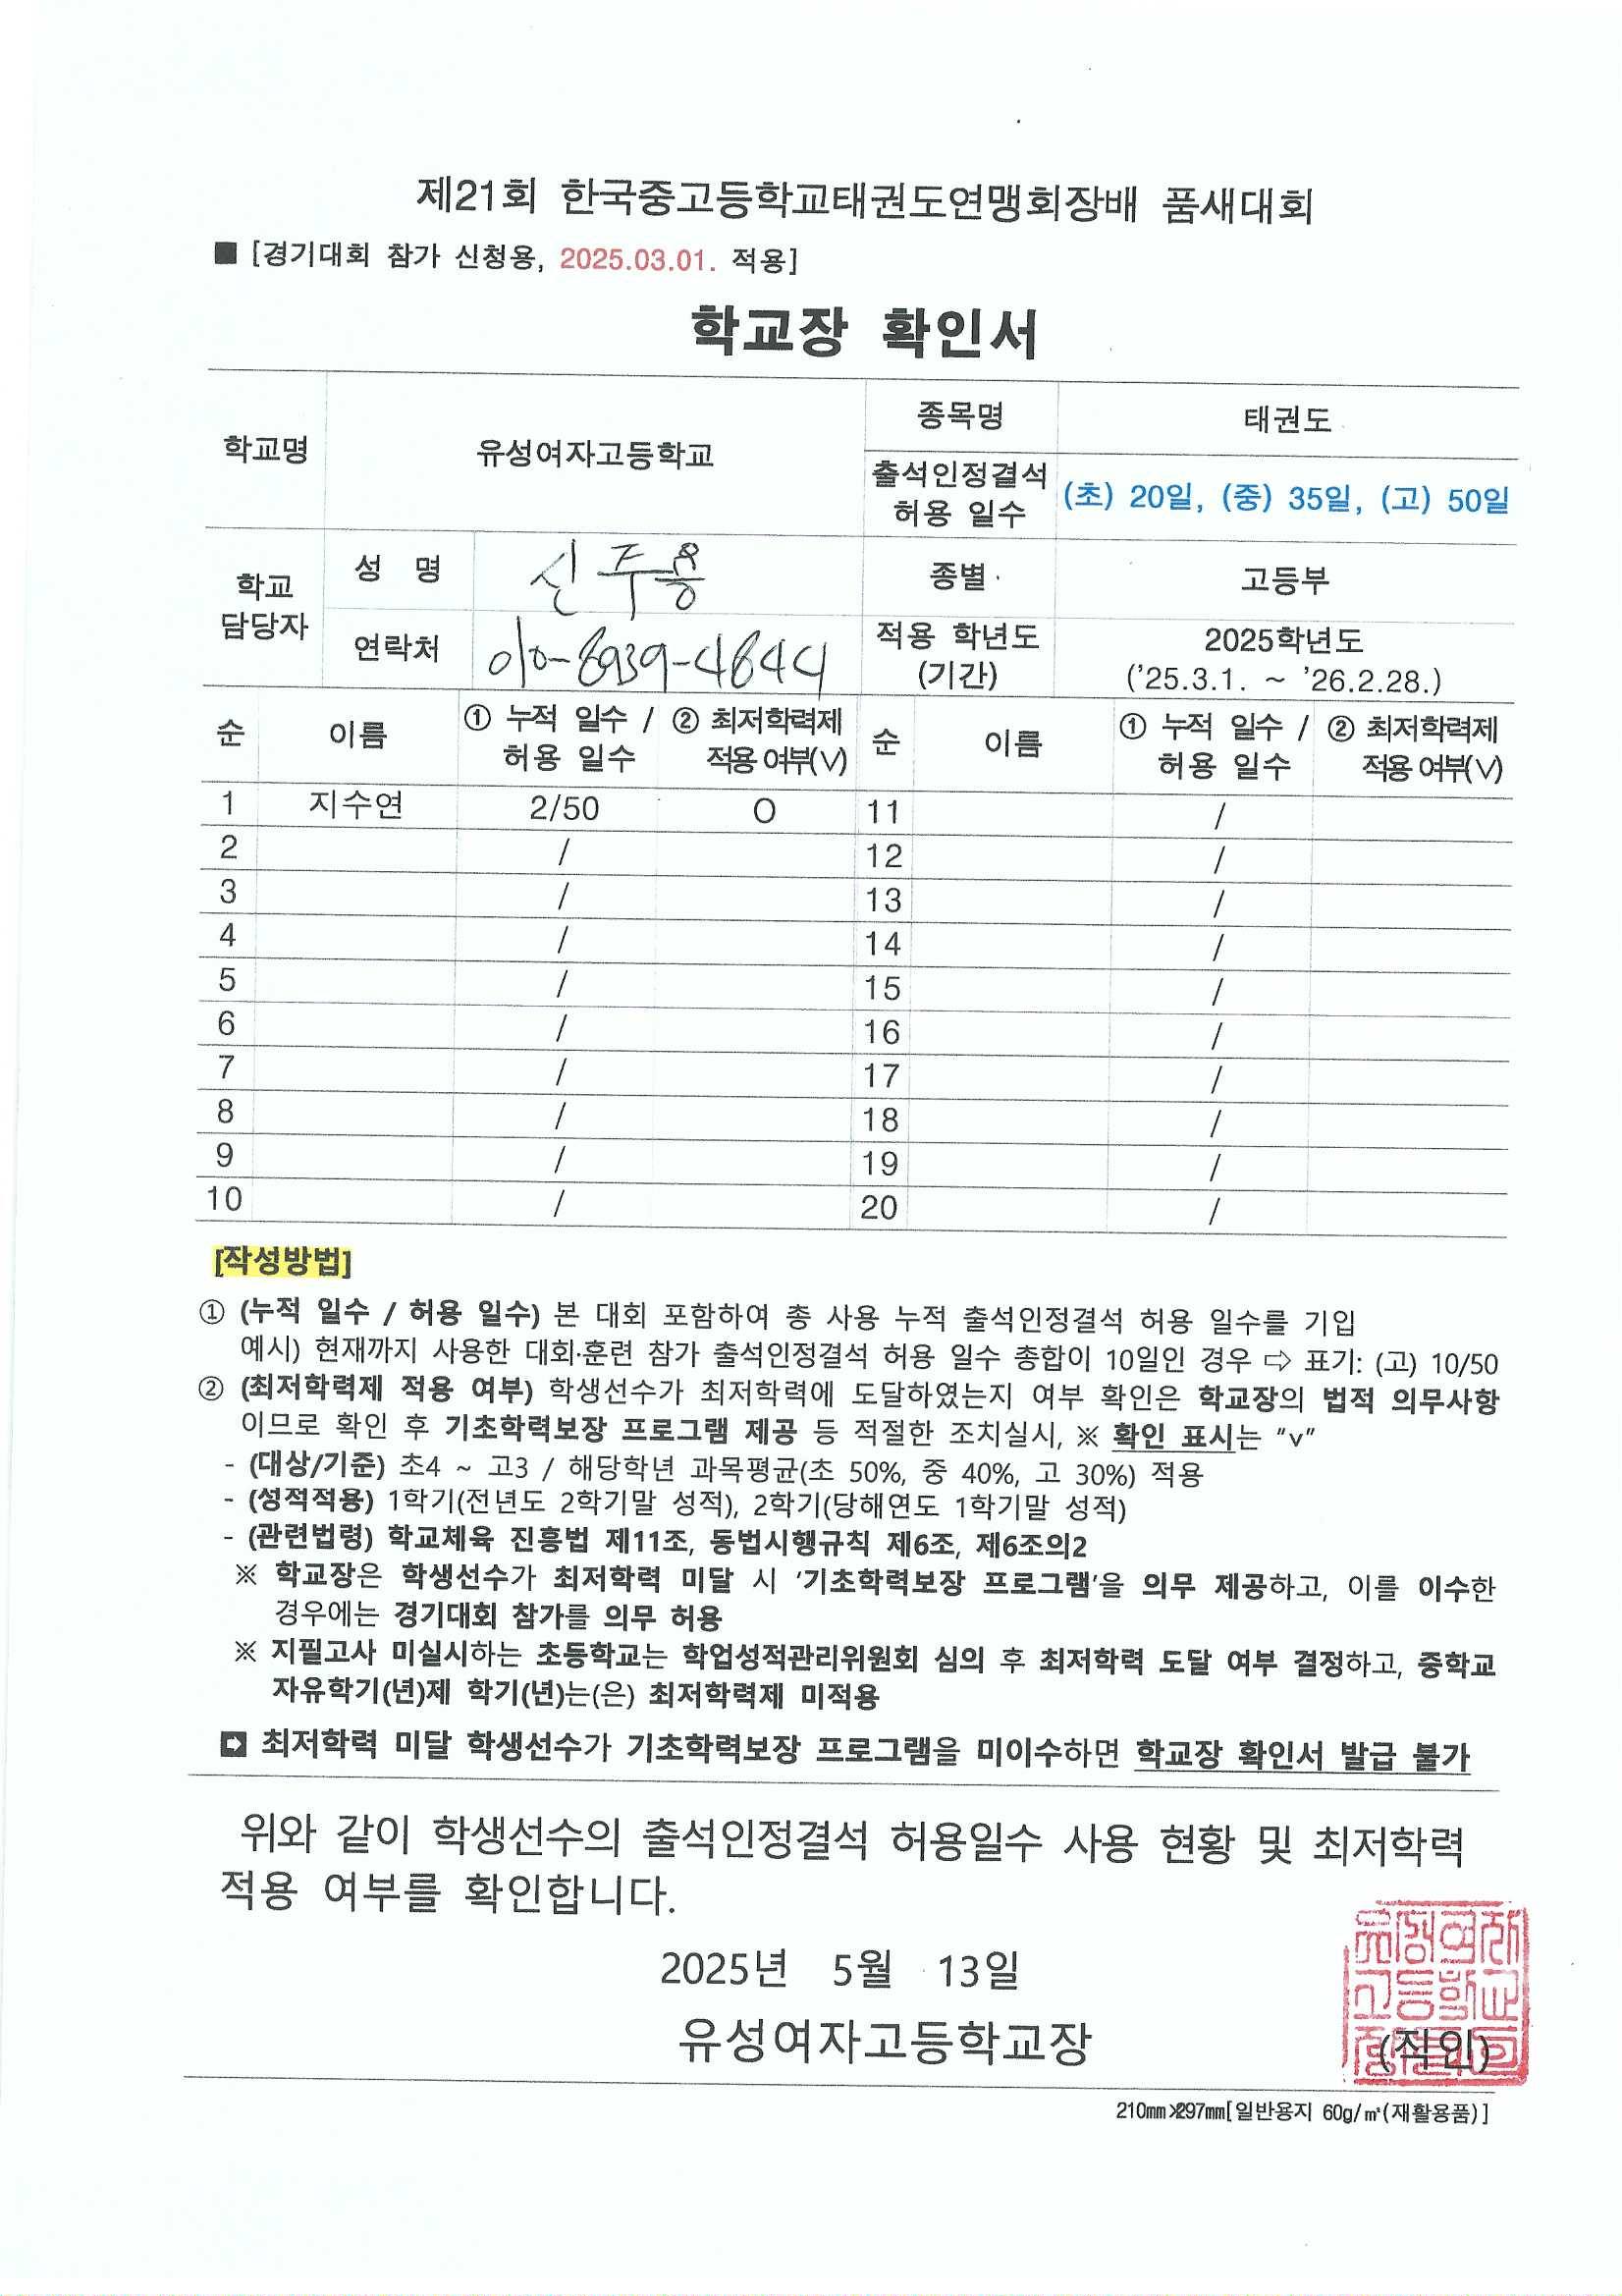 제21회 한국중고등학교태권도연맹회장배 품새대회
■ [경기대회 참가 신청용, 2025.03.01. 적용]
학교장 확인서
학교명 유성여자고등학교 종목명 태권도
출석인정결석 허용 일수 (초) 20일, (중) 35일, (고) 50일
학교 담당자 성 명 신주용 종별 고등부
연락처 010-8939-4844 적용 학년도 (기간) 2025학년도 ('25.3.1. ~ '26.2.28.)
순 이름 ① 누적 일수 / 허용 일수 ② 최저학력제 적용 여부(∨) 순 이름 ① 누적 일수 / 허용 일수 ② 최저학력제 적용 여부(∨)
1 지수연 2/50 O 11 /
2 / 12 /
3 / 13 /
4 / 14 /
5 / 15 /
6 / 16 /
7 / 17 /
8 / 18 /
9 / 19 /
10 / 20 /
[작성방법]
① (누적 일수 / 허용 일수) 본 대회 포함하여 총 사용 누적 출석인정결석 허용 일수를 기입
예시) 현재까지 사용한 대회·훈련 참가 출석인정결석 허용 일수 총합이 10일인 경우 ⇨ 표기: (고) 10/50
② (최저학력제 적용 여부) 학생선수가 최저학력에 도달하였는지 여부 확인은 학교장의 법적 의무사항
이므로 확인 후 기초학력보장 프로그램 제공 등 적절한 조치실시, ※ 확인 표시는 “v”
- (대상/기준) 초4 ~ 고3 / 해당학년 과목평균(초 50%, 중 40%, 고 30%) 적용
- (성적적용) 1학기(전년도 2학기말 성적), 2학기(당해연도 1학기말 성적)
- (관련법령) 학교체육 진흥법 제11조, 동법시행규칙 제6조, 제6조의2
※ 학교장은 학생선수가 최저학력 미달 시 ‘기초학력보장 프로그램’을 의무 제공하고, 이를 이수한
경우에는 경기대회 참가를 의무 허용
※ 지필고사 미실시하는 초등학교는 학업성적관리위원회 심의 후 최저학력 도달 여부 결정하고, 중학교
자유학기(년)제 학기(년)는(은) 최저학력제 미적용
➡ 최저학력 미달 학생선수가 기초학력보장 프로그램을 미이수하면 학교장 확인서 발급 불가
위와 같이 학생선수의 출석인정결석 허용일수 사용 현황 및 최저학력
적용 여부를 확인합니다.
2025년 5월 13일
유성여자고등학교장 (직인)
210mm×297mm[일반용지 60g/㎡(재활용품)]